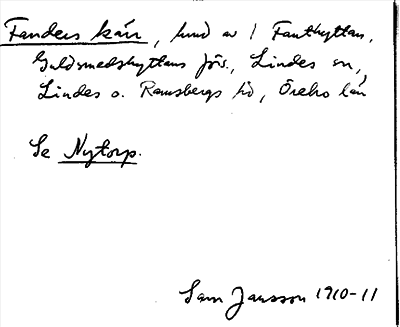 Fanders kärr, hund av / Fanthyttan,
Guldsmedshyttans förs., Lindes sn,
Lindes o. Ramsbergs hd, Örebro län
Se Nytorp.
Sam Jansson 1910-11